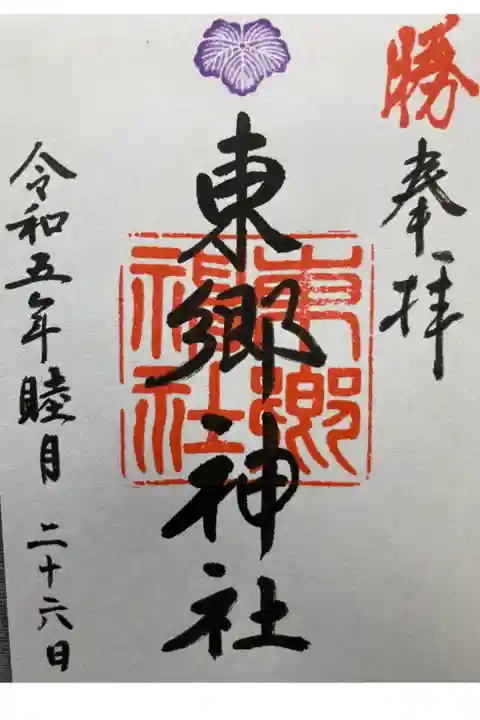 勝
奉拝
東郷神社
東郷神社
令和五年睦月 二十六日